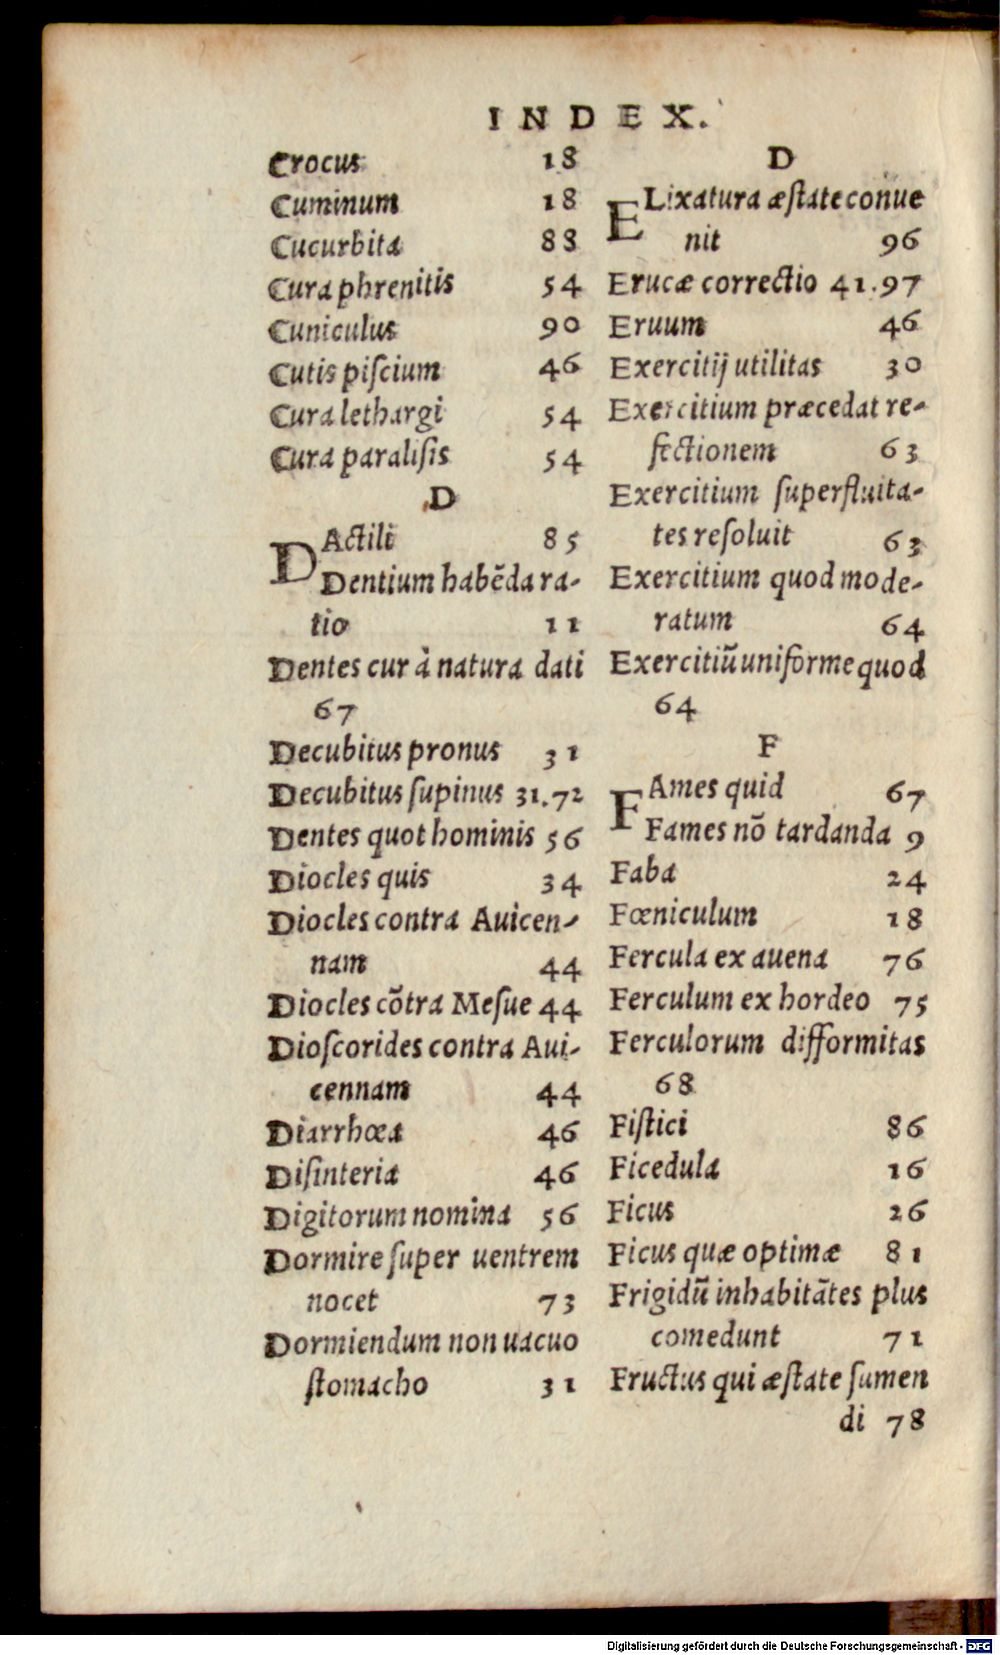 INDEX.
Crocus 18
Cuminum 18
Cucurbita 88
Cura phrenitis 54
Cuniculus 90
Cutis piſcium 46
Cura lethargi 54
Cura paraliſis 54
D
DActili 85
Dentium habēda ra-
tio 11
Dentes cur à natura dati
67
Decubitus pronus 31
Decubitus ſupinus 31.72
Dentes quot hominis 56
Diocles quis 34
Diocles contra Auicen-
nam 44
Diocles cōtra Meſue 44
Dioſcorides contra Aui-
cennam 44
Diarrhœa 46
Diſinteria 46
Digitorum nomina 56
Dormire ſuper uentrem
nocet 73
Dormiendum non uacuo
ſtomacho 31
D
ELixatura æſtate conue
nit 96
Erucæ correctio 41.97
Eruum 46
Exercitij utilitas 30
Exercitium præcedat re-
fectionem 63
Exercitium ſuperfluita-
tes reſoluit 63
Exercitium quod mode-
ratum 64
Exercitiū uniforme quod
64
F
FAmes quid 67
Fames nō tardanda 9
Faba 24
Fœniculum 18
Fercula ex auena 76
Ferculum ex hordeo 75
Ferculorum difformitas
68
Fiſtici 86
Ficedula 16
Ficus 26
Ficus quæ optimæ 81
Frigidū inhabitātes plus
comedunt 71
Fructus qui æſtate ſumen
di 78
Digitalisierung gefördert durch die Deutsche Forschungsgemeinschaft - DFG